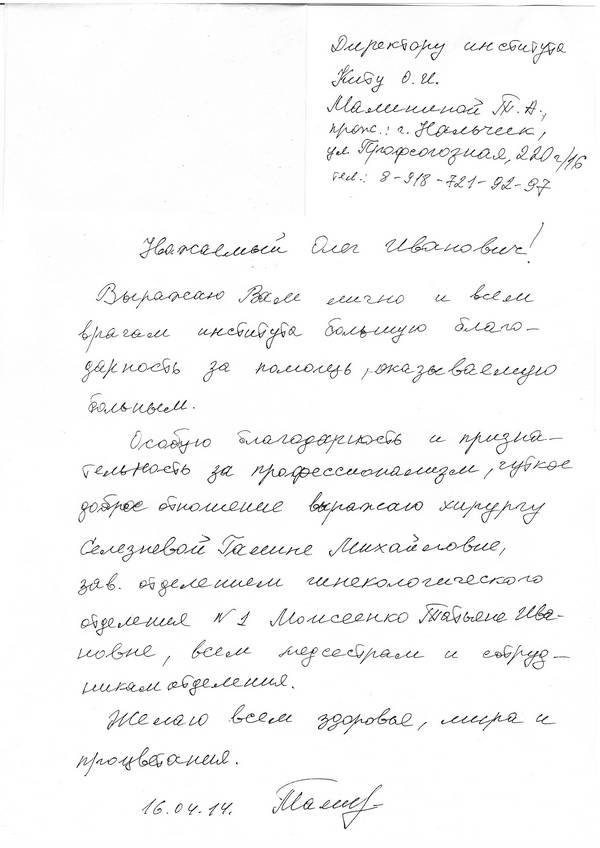 Директору института
Киту О.И.
Малининой Т.А.,
прож.: г. Нальчик,
ул Профсоюзная, 220 г/16
тел.: 8-918-721-92-97
Уважаемый Олег Иванович!
Выражаю Вам лично и всем
врачам института большую благо-
дарность за помощь, оказываемую
больным.
Особую благодарность и призна-
тельность за профессионализм, чуткое
доброе отношение выражаю хирургу
Селезневой Галине Михайловне,
зав. отделением гинекологического
отделения N1 Моисеенко Татьяне Ива-
новне, всем медсестрам и сотруд-
никам отделения.
Желаю всем здоровье, мира и
процветания.
16.04.14.